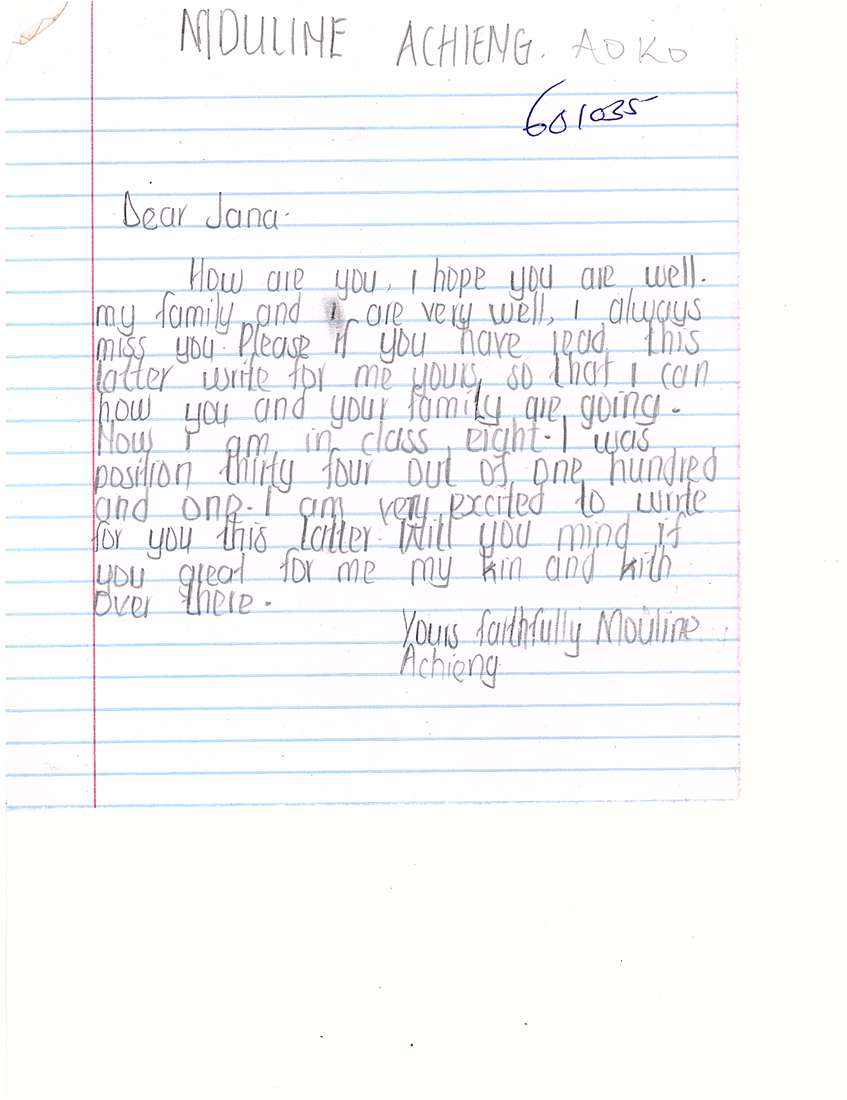 MOULINE ACHIENG. AOKO
601035
Dear Jana.
How are you, I hope you are well.
my family and I are very well, I always
miss you. Please if you have read this
latter write for me yours, so that I can
how you and your family are going.
Now I am in class eight. I was
position thirty four out of one hundred
and one. I am very excited to write
for you this latter. Will you mind if
you great for me my kin and kith
over there.
Yours faithfully Mouline
Achieng